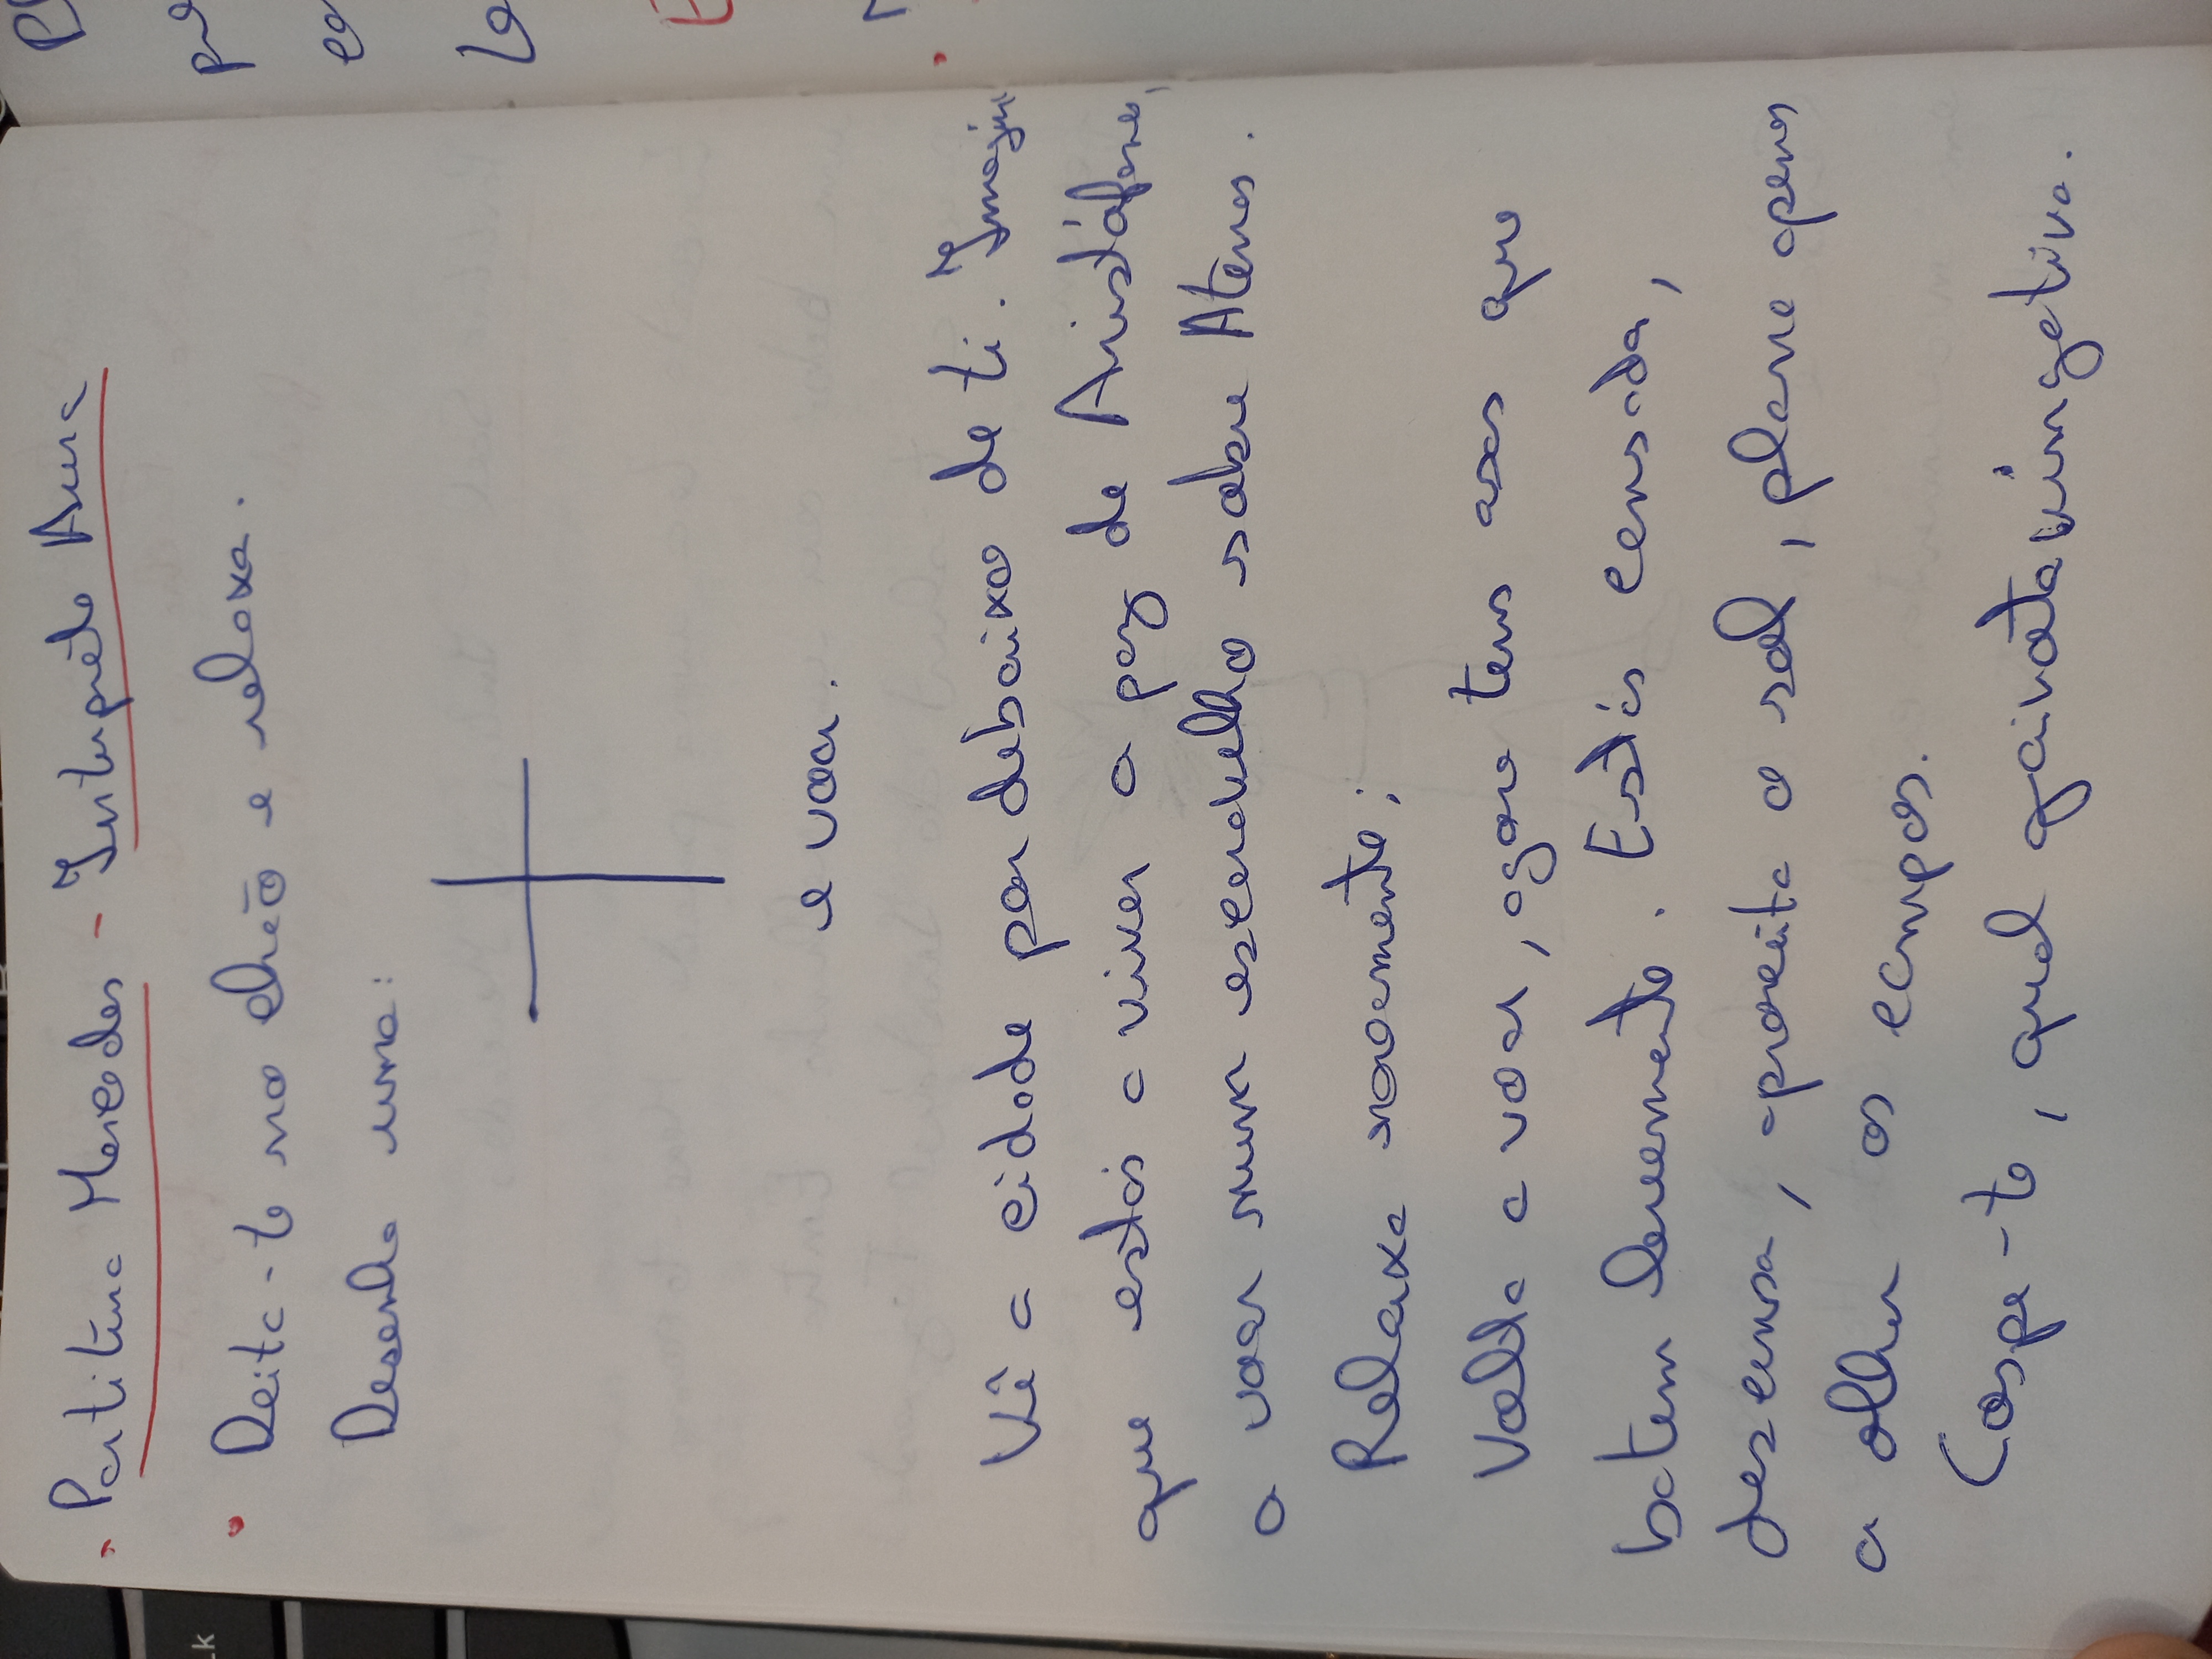 • Partitura Mercedes - Interpréte Anna
• Deita-te no chão e relaxa.
Desenha uma:
e voa.
Vê a cidade por debaixo de ti. Imagin
que estás a viver a paz de Aristófanes,
a voar num escaravelho sobre Atenas.
Relaxa novamente;
Volta a voar, agora tens asas que
batem levemente. Estás cansada,
descansa, aproveita o sol, plana apenas
a olhar os campos.
Cospe-te, qual gaivota vingativa.